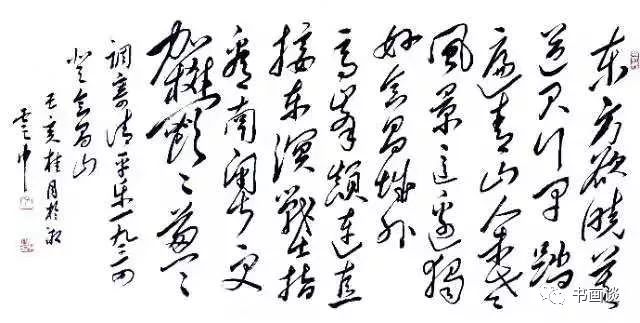 东方欲晓莫
道君行早踏
遍青山人未老
風景这边獨
好会昌城外
高峰颠连直
接东溟战士指
看南粤更
加鬱々葱々
调寄清平乐一九三四
登会昌山
己亥桂月於湘
云中
书画谈